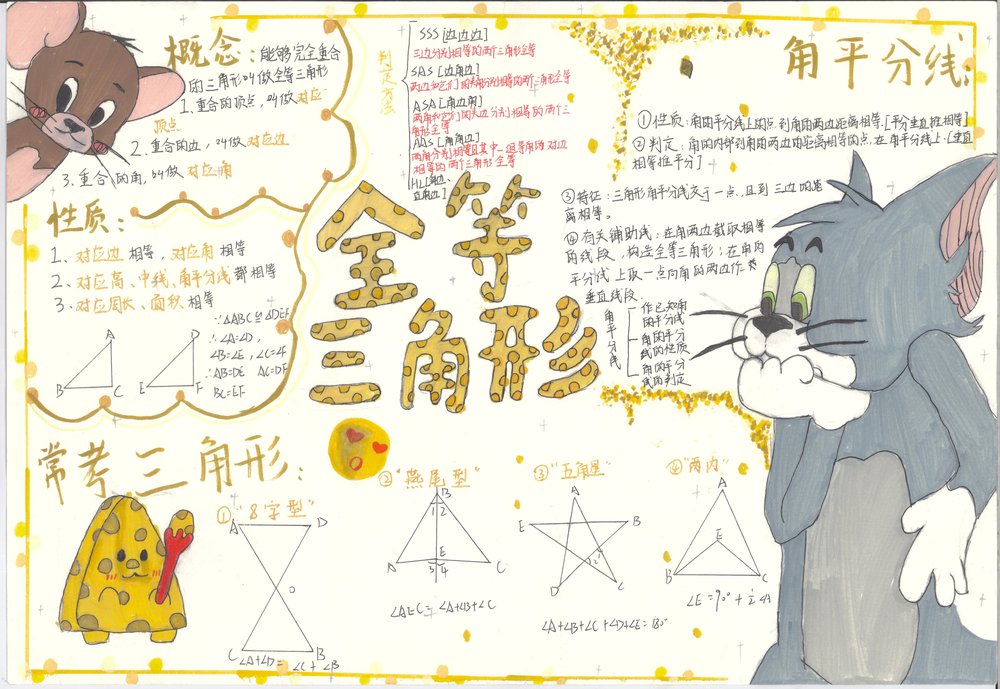 概念：能够完全重合
的三角形叫做全等三角形
1.重合的顶点，叫做对应
顶点
2.重合的边，叫做对应边
3.重合的角，叫做对应角
判定方法
SSS[边边边]
三边分别相等的两个三角形全等
SAS[边角边]
两边和它们的夹角分别相等的两个三角形全等
ASA[角边角]
两角和它们的夹边分别相等的两个三
角形全等
AAS[角角边]
两角分别相等且其中一组等角的对边
相等的两个三角形全等
HL[斜边、
直角边]
角平分线：
①性质：角的平分线上的点到角的两边距离相等.[平分垂直推相等]
②判定：角的内部到角的两边的距离相等的点，在角平分线上.[垂直
相等推平分]
③特征：三角形角平分线交于一点，且到三边的距
离相等。
④有关辅助线：在角两边截取相等
两线段，构造全等三角形；在角的
平分线上取一点向角的两边作
垂直线段.
角平分线
作已知角
的平分线
角的平分
线的性质
角的平分
线的判定
性质：
1、对应边相等，对应角相等
2、对应高、中线、角平分线都相等
3、对应周长、面积相等
A
B
C
D
E
F
∵△ABC≌△DEF
∴∠A=∠D，
∠B=∠E，∠C=∠F
∴AB=DE AC=DF
BC=EF
全等
三角形
常考三角形：
①“8字型”
A
D
O
C
B
∠A+∠D=∠C+∠B
②“燕尾型”
B
1 2
E
A
3 4
C
∠AEC=∠A+∠B+∠C
③“五角星”
A
E
B
1
2
D
C
∠A+∠B+∠C+∠D+∠E=180°
④“两内”
A
E
B
C
∠E=90°+½∠A